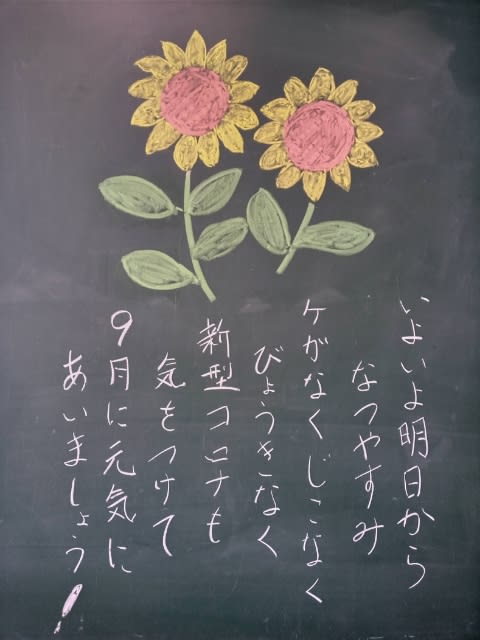 いよいよ明日から
なつやすみ
ケがなくじこなく
びょうきなく
新型コロナも
気をつけて
9月に元気に
あいましょう!